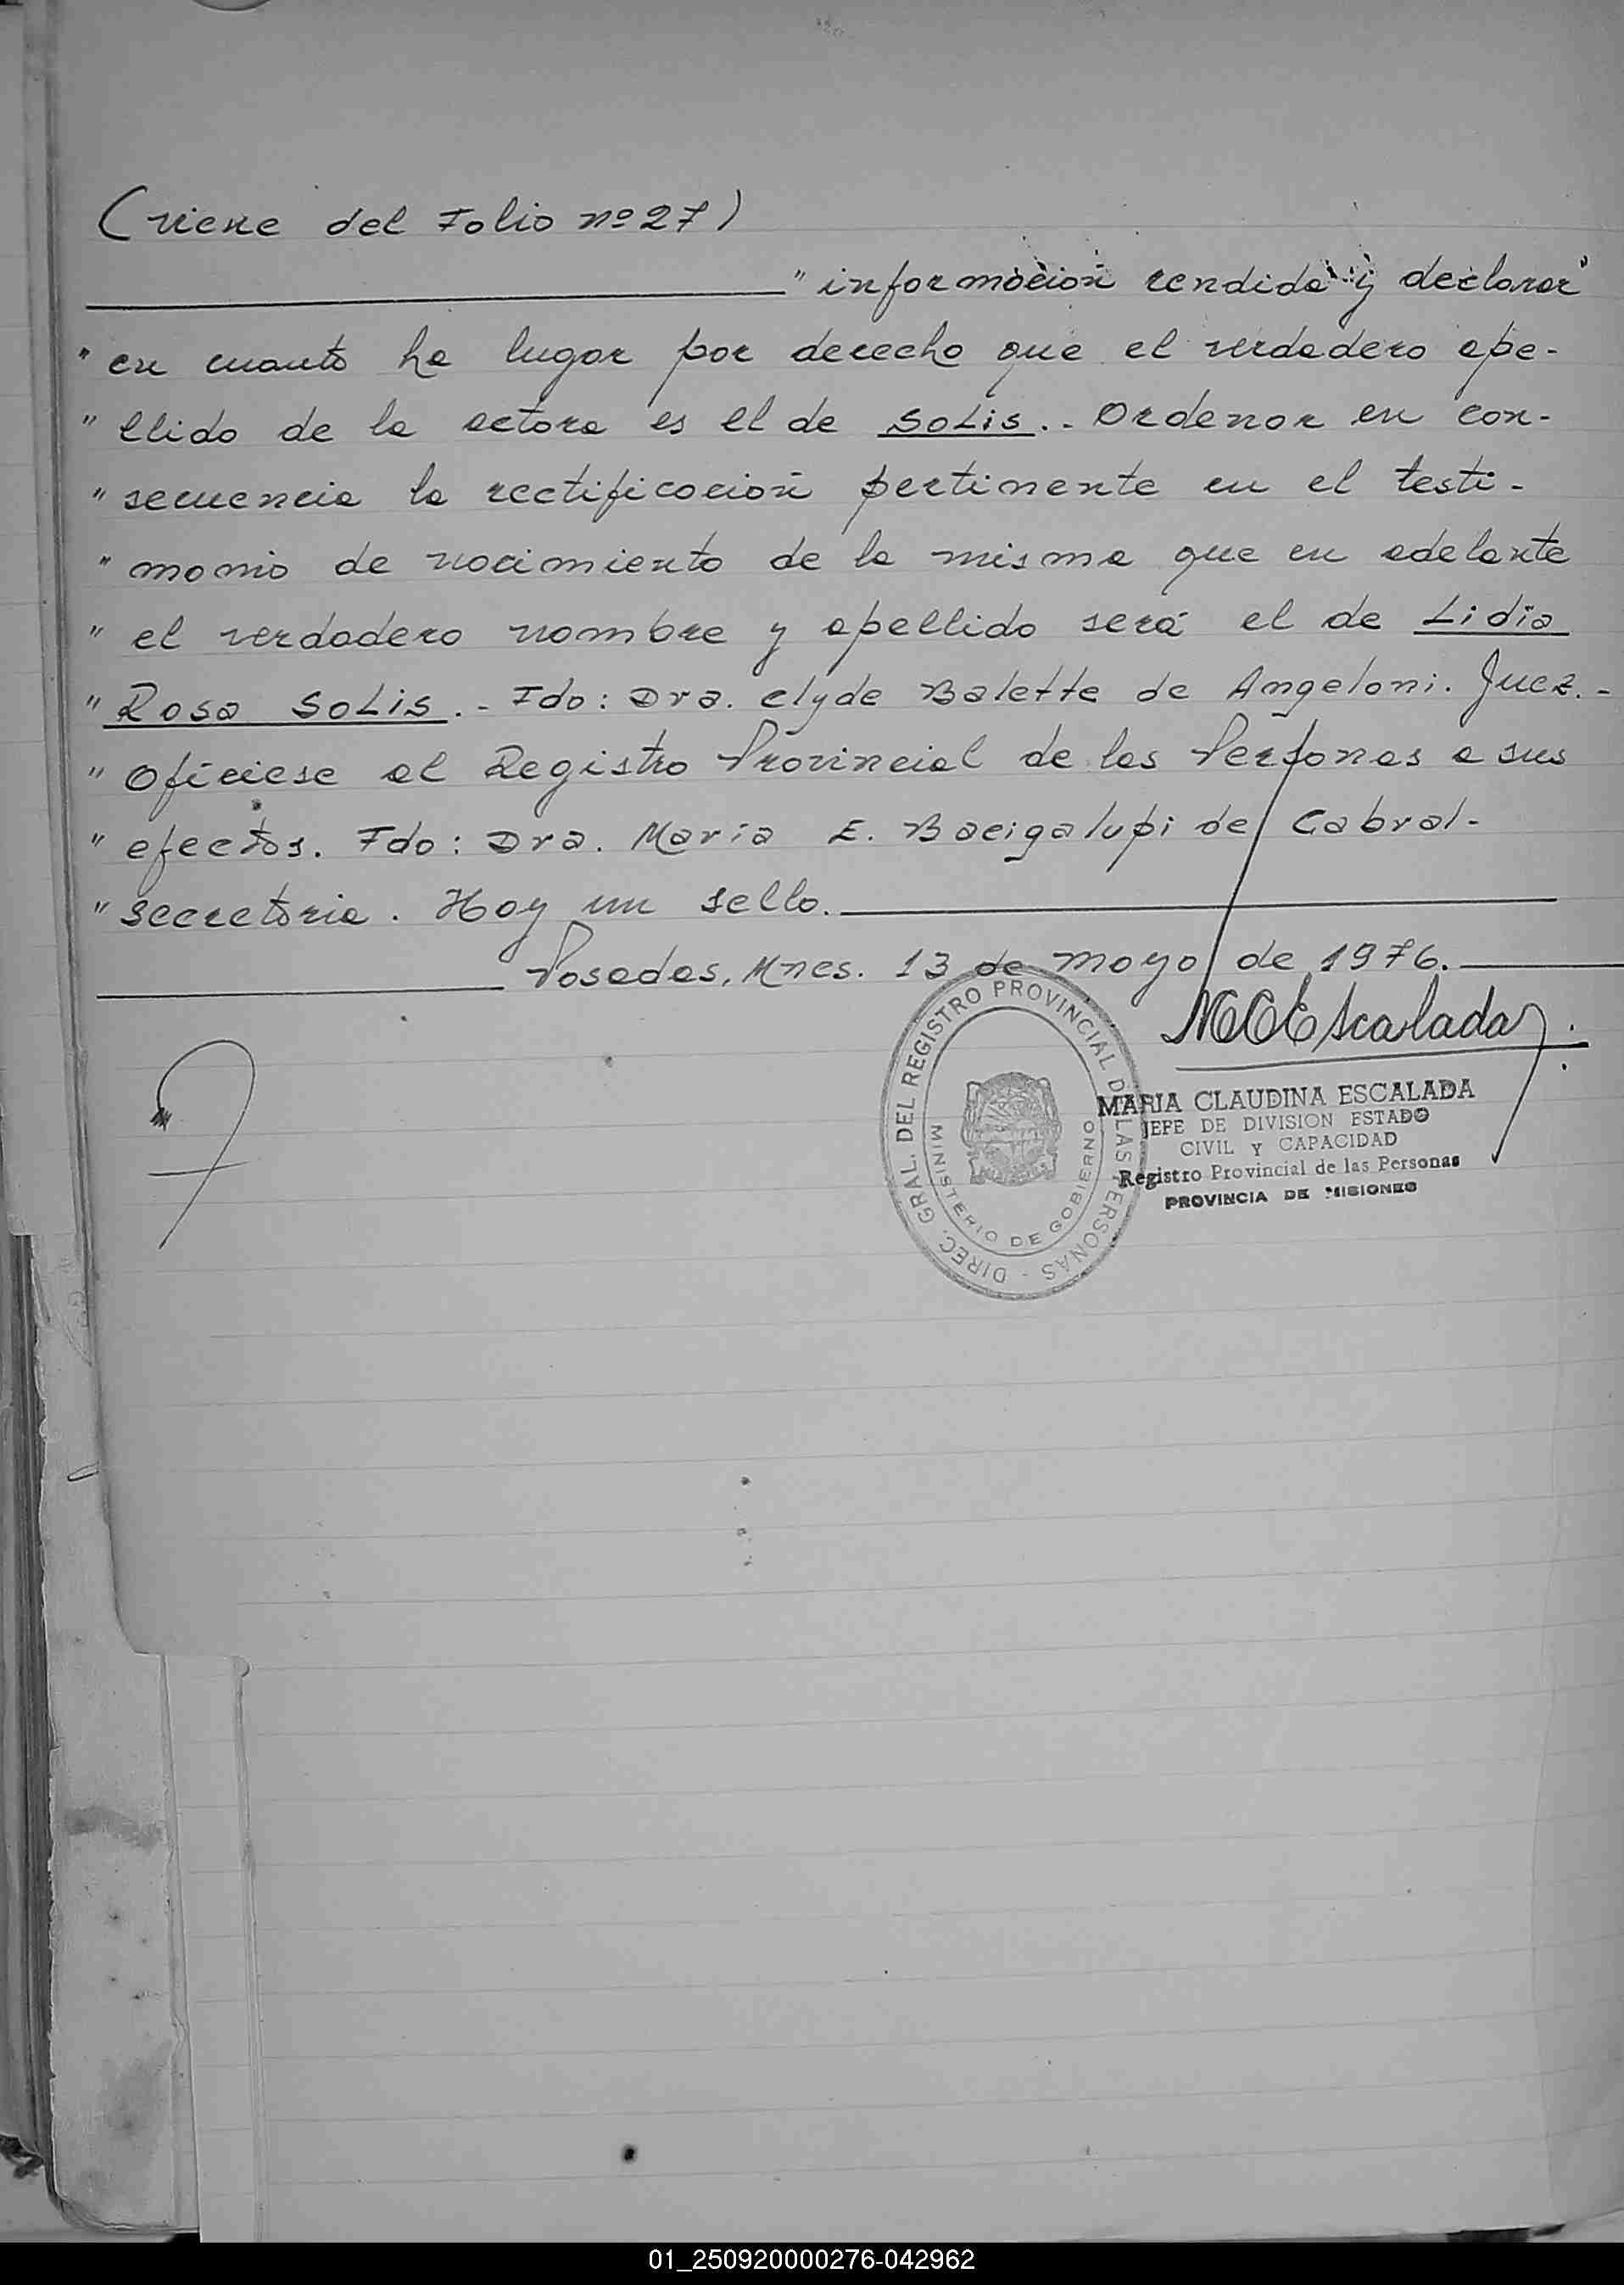 (viene del Folio nº 27)
" información rendida y declarar"
" en cuanto ha lugar por derecho que el verdadero ape-
" llido de la actora es el de SOLIS.- Ordenar en con-
" secuencia la rectificación pertinente en el testi-
" monio de nacimiento de la misma que en adelante
" el verdadero nombre y apellido será el de Lidia
" Rosa SOLIS.- Fdo: Dra. Clyde Balette de Angeloni. Juez.-
" Ofíciese al Registro Provincial de las Personas a sus
" efectos. Fdo: Dra. María E. Bacigalupi de Cabral-
" Secretaria. Hay un sello.
Posadas, Mnes. 13 de mayo de 1976.
MCEscalada
DIREC. GRAL. DEL REGISTRO PROVINCIAL DE LAS PERSONAS -
MINISTERIO DE GOBIERNO
MARIA CLAUDINA ESCALADA
JEFE DE DIVISION ESTADO
CIVIL Y CAPACIDAD
Registro Provincial de las Personas
PROVINCIA DE MISIONES
01_250920000276-042962